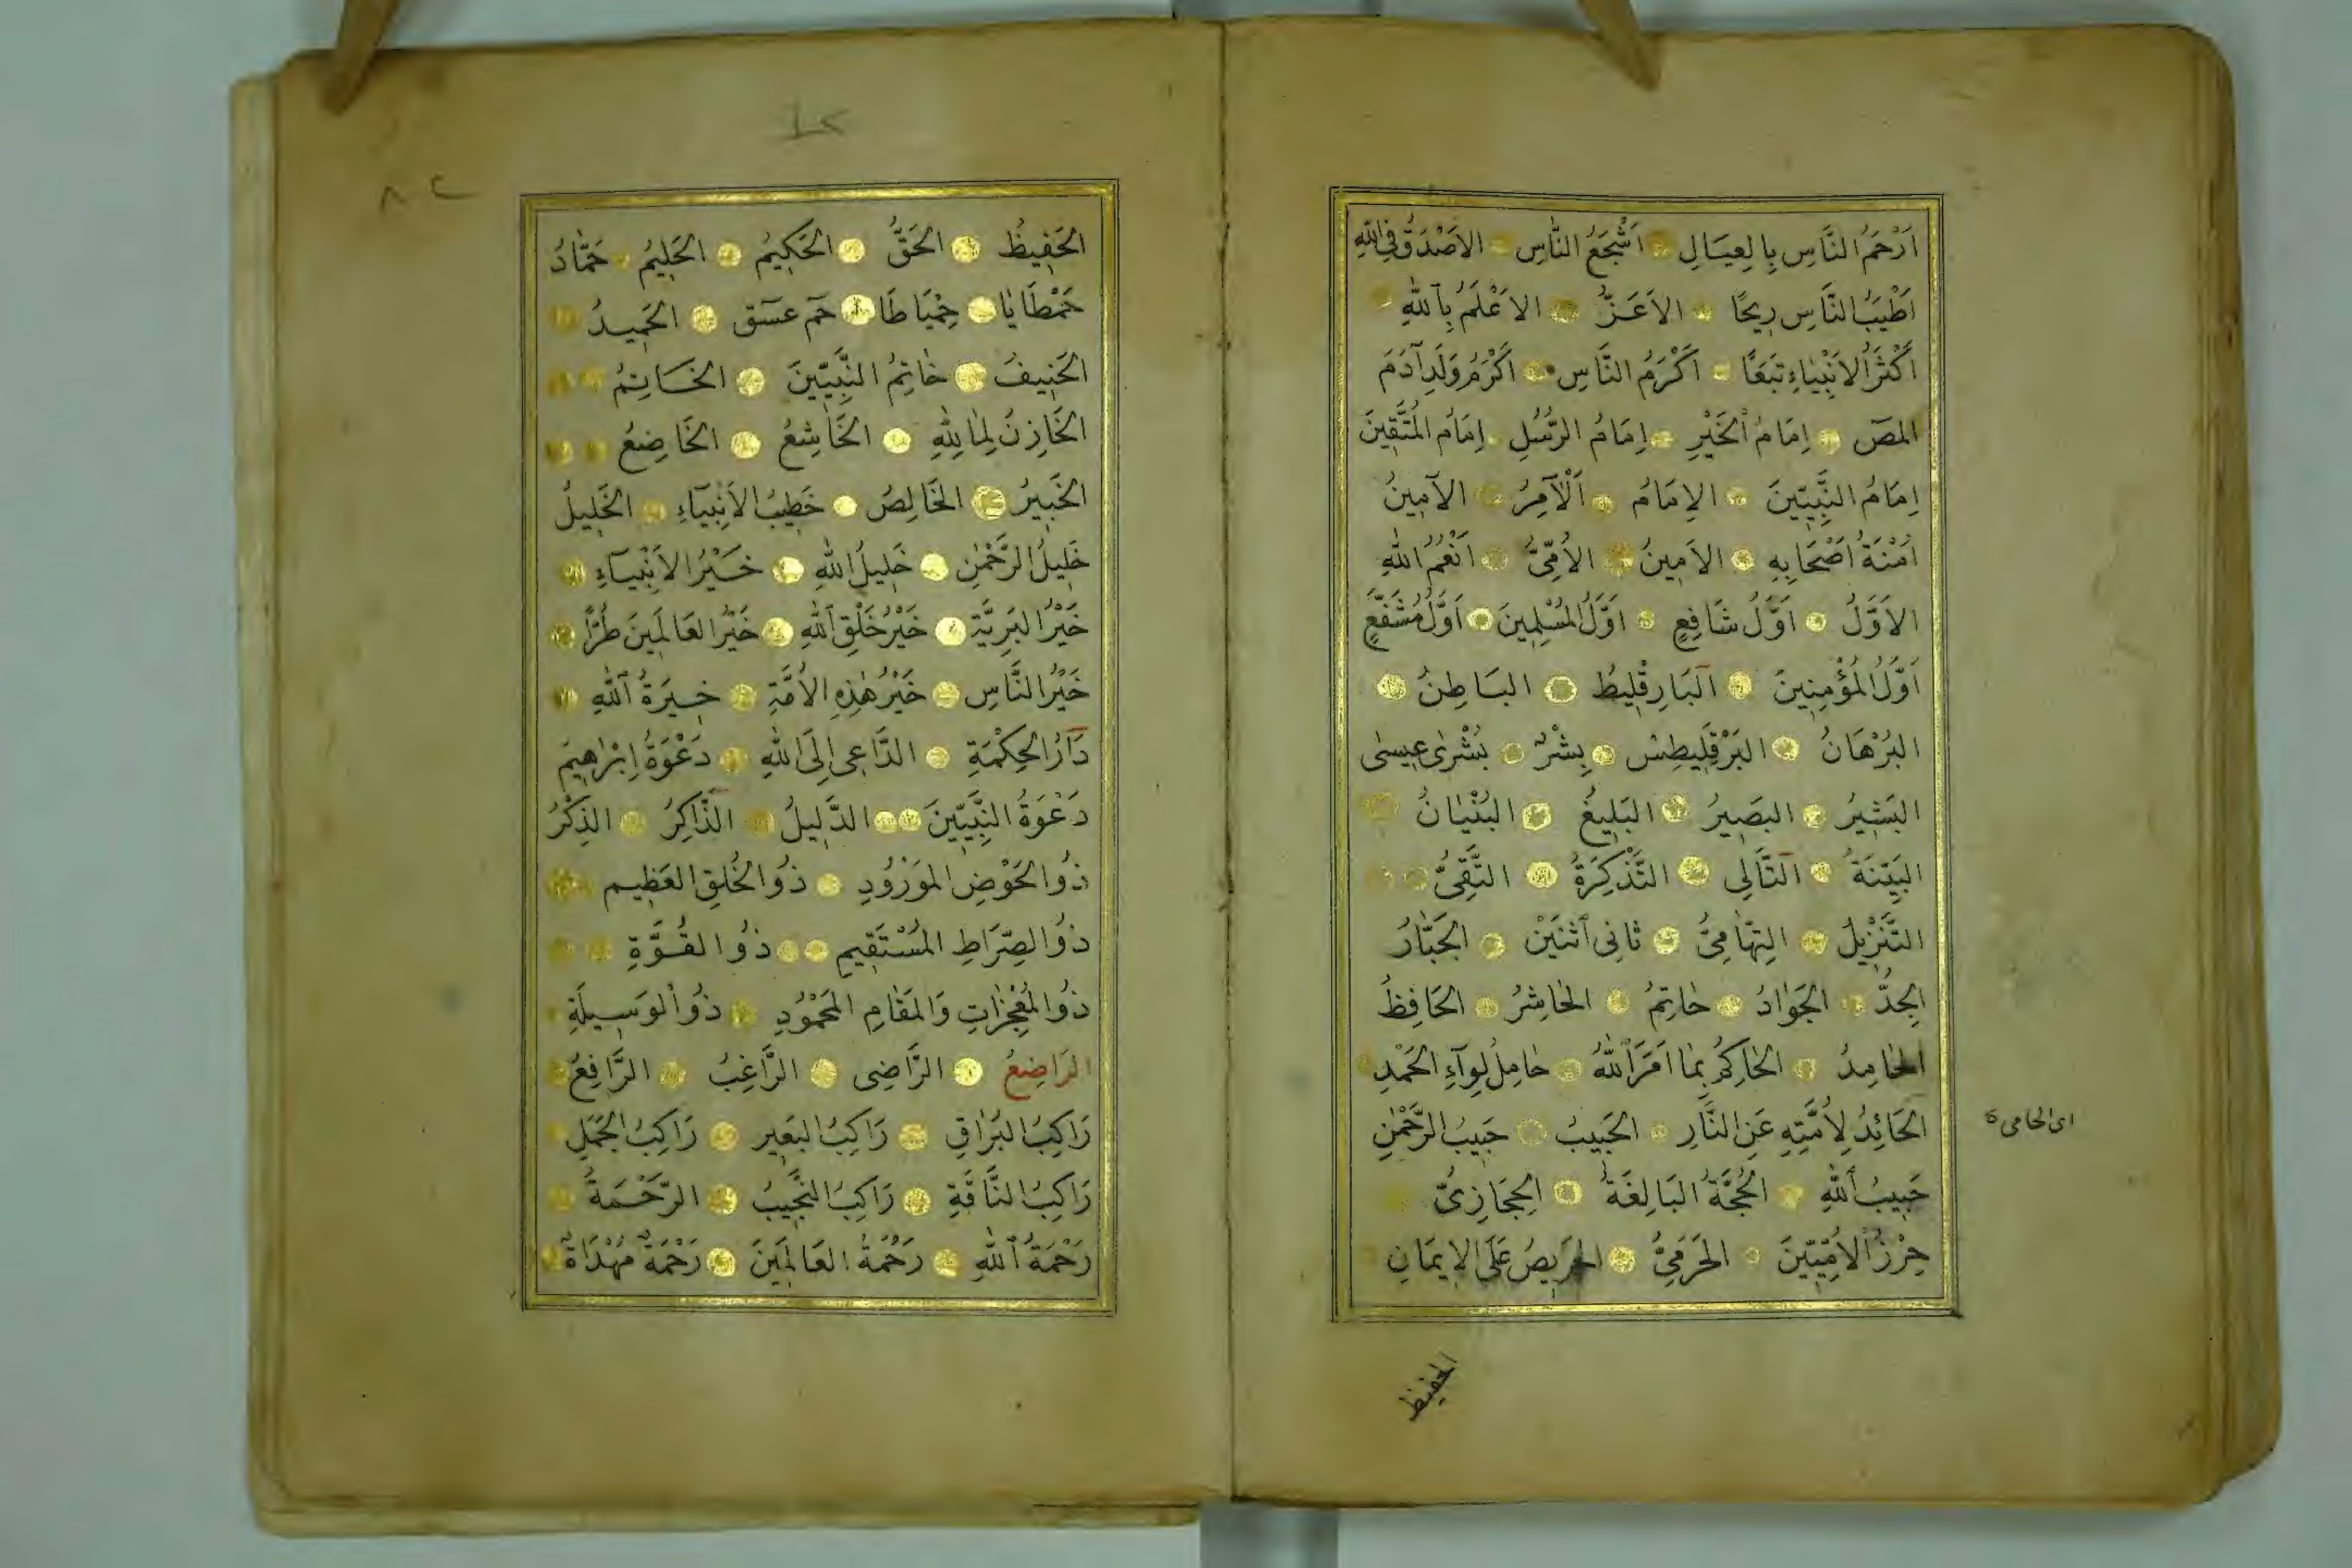 اَرْحَمُ النَّاسِ بِالعِيَالِ اَشْجَعُ النَّاسِ الاَصْدَقُ فِى اللّٰهِ
اَطْيَبُ النَّاسِ رِيحًا الاَعَزُّ الاَعْلَمُ بِاللّٰهِ
اَكْثَرُ الاَنْبِيَاءِ تَبَعًا اَكْرَمُ النَّاسِ اَكْرَمُ وَلَدِ آدَمَ
المص اِمَامُ الخَيْرِ اِمَامُ الرُّسُلِ اِمَامُ المُتَّقِينَ
اِمَامُ النَّبِيِّينَ الاِمَامُ اَلْآمِرُ الآمِينُ
اَمَنَةُ اَصْحَابِهِ الاَمِينُ الاُمِّىُّ اَنْعُمُ اللّٰهِ
الاَوَّلُ اَوَّلُ شَافِعٍ اَوَّلُ المُسْلِمِينَ اَوَّلُ مُشَفَّعٍ
اَوَّلُ المُؤْمِنِينَ البَارِقْلِيطُ البَاطِنُ
البُرْهَانُ البَرْقَلِيطِسْ بِشْرٌ بُشْرٰى عِيسٰى
البَشِيرُ البَصِيرُ البَلِيغُ البُنْيَانُ
البَيِّنَةُ التَّالِى التَّذْكِرَةُ التَّقِىُّ
التَّنْزِيلُ التِّهَامِىُّ ثَانِى اثْنَيْنِ الجَبَّارُ
الجِدُّ الجَوَادُ حَاتِمُ الحَاشِرُ الحَافِظُ
الحَامِدُ الحَاكِمُ بِمَا اَمَرَ اللّٰهُ حَامِلُ لِوَآءِ الحَمْدِ
الحَائِدُ لِاُمَّتِهِ عَنِ النَّارِ الحَبِيبُ حَبِيبُ الرَّحْمٰنِ
اى الحامى
حَبِيبُ اللّٰهِ الحُجَّةُ البَالِغَةُ الحِجَازِىُّ
حِرْزُ الاُمِّيِّينَ الحَرَمِىُّ الحَرِيصُ عَلَى الاِيمَانِ
الحفيظ
٨٢
الحَفِيظُ الحَقُّ الحَكِيمُ الحَلِيمُ حَمَّادُ
حَمْطَايَا حِمْيَاطَا حم عسق الحَمِيدُ
الحَنِيفُ خَاتِمُ النَّبِيِّينَ الخَاتِمُ
الخَازِنُ لِمَالِ اللّٰهِ الخَاشِعُ الخَاضِعُ
الخَبِيرُ الخَالِصُ خَطِيبُ الاَنْبِيَآءِ الخَلِيلُ
خَلِيلُ الرَّحْمٰنِ خَلِيلُ اللّٰهِ خَيْرُ الاَنْبِيَآءِ
خَيْرُ البَرِيَّةِ خَيْرُ خَلْقِ اللّٰهِ خَيْرُ العَالَمِينَ طُرًّا
خَيْرُ النَّاسِ خَيْرُ هٰذِهِ الاُمَّةِ خِيَرَةُ اللّٰهِ
دَارُ الحِكْمَةِ الدَّاعِى اِلَى اللّٰهِ دَعْوَةُ اِبْرٰهِيمَ
دَعْوَةُ النَّبِيِّينَ الدَّلِيلُ الذَّاكِرُ الذِكْرُ
ذُو الحَوْضِ المَوْرُودِ ذُو الخُلُقِ العَظِيمِ
ذُو الصِّرَاطِ المُسْتَقِيمِ ذُو القُوَّةِ
ذُو المُعْجِزَاتِ وَالمَقَامِ المَحْمُودِ ذُو الوَسِيلَةِ
الرَاضِعُ الرَّاضِى الرَّاغِبُ الرَّافِعُ
رَاكِبُ البُرَاقِ رَاكِبُ البَعِيرِ رَاكِبُ الجَمَلِ
رَاكِبُ النَّاقَةِ رَاكِبُ النَّجِيبُ الرَّحْمَةُ
رَحْمَةُ اللّٰهِ رَحْمَةُ العَالَمِينَ رَحْمَةٌ مُهْدَاةٌ